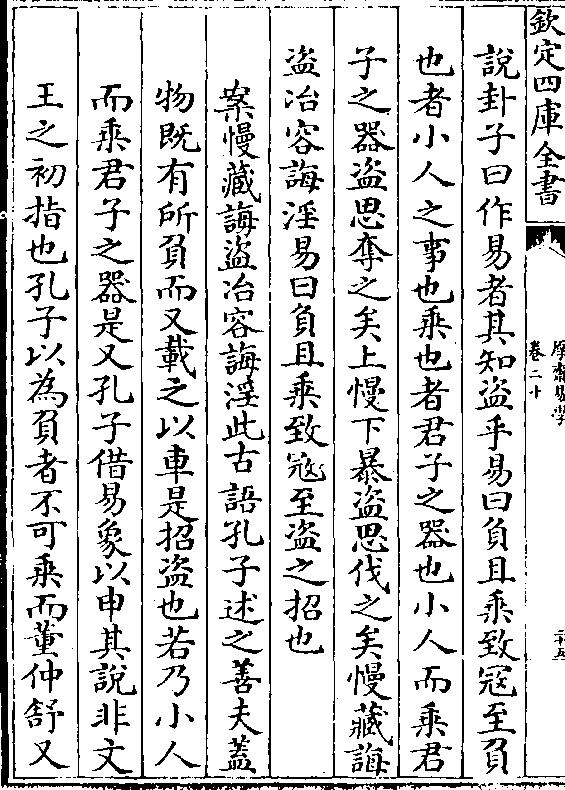 欽定四庫全書
卷二十
厚齋易學
二十五
說卦子曰作易者其知盗乎易曰負且乘致寇至負
也者小人之事也乘也者君子之器也小人而乘君
子之器盗思奪之矣上慢下暴盗思伐之矣慢藏誨
盗冶容誨淫易曰負且乘致寇至盗之招也
案慢藏誨盗冶容誨淫此古語孔子述之善夫蓋
物既有所負而又載之以車是招盗也若乃小人
而乘君子之器是又孔子借易象以申其說非文
王之初指也孔子以為負者不可乘而董仲舒又